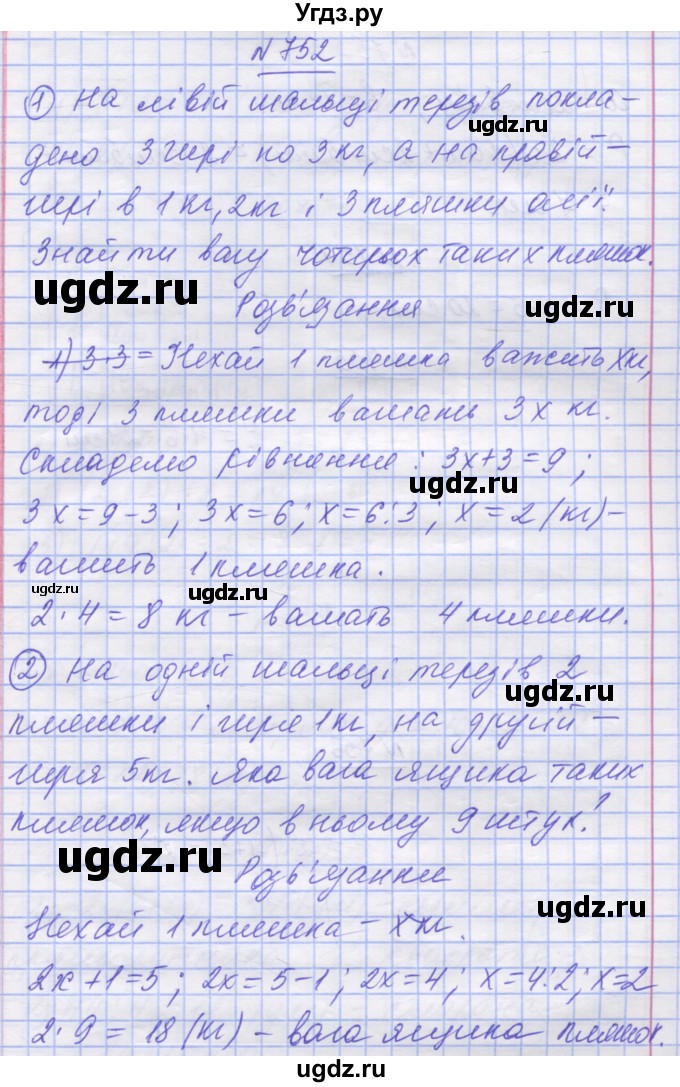 Угдз.ру
№752
① На лівій шальці терезів покла-
дено 3 гирі по 3 кг, а на правій –
гирі в 1 кг, 2 кг і 3 пляшки олії.
Знайти вагу чотирьох таких пляшок.
Розв'язання
1) 3·3 = Нехай 1 пляшка важить x кг,
тоді 3 пляшки важать 3x кг.
Складемо рівняння: 3x+3=9;
3x=9-3; 3x=6; x=6:3; x=2 (кг) –
важить 1 пляшка.
2·4=8 кг – важать 4 пляшки.
② На одній шальці терезів 2
пляшки і гиря 1 кг, на другій –
гиря 5 кг. Яка вага ящика таких
пляшок, якщо в ньому 9 штук?
Розв'язання
Нехай 1 пляшка – x кг.
2x+1=5; 2x=5-1; 2x=4; x=4:2; x=2
2·9=18 (кг) – вага ящика пляшок.
ugdz.ru
ugdz.ru
ugdz.ru
ugdz.ru
ugdz.ru
ugdz.ru
ugdz.ru
ugdz.ru
ugdz.ru
ugdz.ru
ugdz.ru